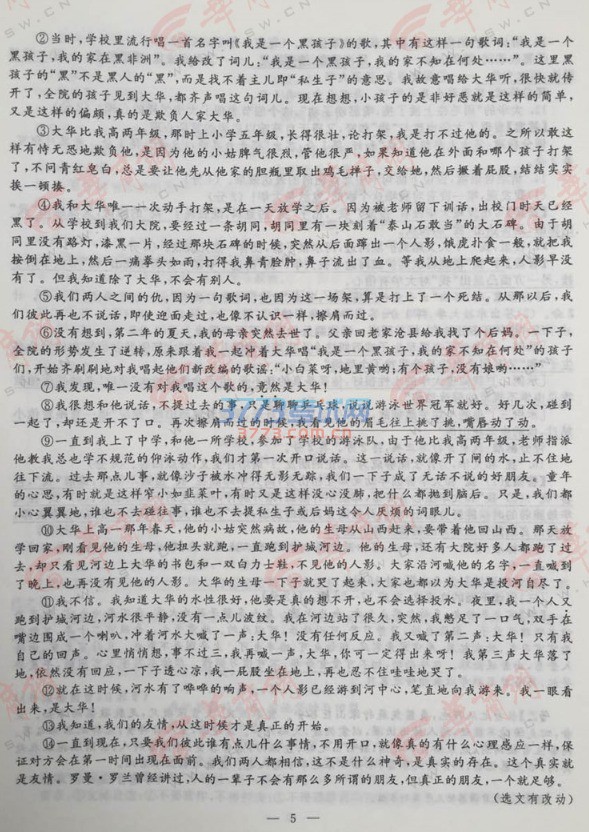 ②当时,学校里流行唱一首名字叫《我是一个黑孩子》的歌,其中有这样一句歌词:“我是一个
黑孩子,我的家在黑非洲”。我给改了词儿:“我是一个黑孩子,我的家不知在何处……”。这里黑
孩子的“黑”不是黑人的“黑”,而是找不着主儿即“私生子”的意思。我故意唱给大华听,很快就传
开了,全院的孩子见到大华,都齐声唱这句词儿。现在想想,小孩子的是非好恶就是这样的简单,
又是这样的偏颇,真的是欺负人家大华。
③大华比我高两年级,那时上小学五年级,长得很壮,论打架,我是打不过他的。之所以敢这
样有恃无恐地欺负他,是因为他的小姑脾气很烈,管他很严,如果知道他在外面和哪个孩子打架
了,不问青红皂白,总是要让他先从他家的胆瓶里取出鸡毛掸子,交给她,然后撅着屁股,结结实实
挨一顿揍。
④我和大华唯一一次动手打架,是在一天放学之后。因为被老师留下训话,出校门时天已经
黑了。从学校到我们大院,要经过一条胡同,胡同里有一块刻着“泰山石敢当”的大石碑。由于胡
同里没有路灯,漆黑一片,经过那块石碑的时候,突然从后面蹿出一个人影,饿虎扑食一般,就把我
按倒在地上,然后一痛拳头如雨,打得我鼻青脸肿,鼻子流出了血。等我从地上爬起来,人影早没
有了。但我知道除了大华,不会有别人。
⑤我们两人之间的仇,因为一句歌词,也因为这一场架,算是打上了一个死结。从那以后,我
们彼此再也不说话,即使迎面走过,也像不认识一样,擦肩而过。
⑥没有想到,第二年的夏天,我的母亲突然去世了。父亲回老家沧县给我找了个后妈。一下子,
全院的形势发生了逆转,原来跟着我一起冲着大华唱“我是一个黑孩子,我的家不知在何处”的孩子
们,开始齐刷刷地对我唱起他们新改编的歌谣:“小白菜呀,地里黄哟;有个孩子,没有娘哟……”
⑦我发现,唯一没有对我唱这个歌的,竟然是大华!
⑧我很想和他说话,不提过去的事,只是聊聊乒乓球,说说游泳世界冠军就好。好几次,碰到
一起了,却还是开不了口。再次擦肩而过的时候,我看见他的眉毛往上挑了挑,嘴唇动了动。
⑨一直到我上了中学,和他一所学校,参加了学校的游泳队,由于他比我高两年级,老师指派
他教我总也学不规范的仰泳动作,我们才第一次开口说话。这一说话,就像开了闸的水,止不住地
往下流。过去那点儿事,就像沙子被水冲得无影无踪,我们一下子成了无话不说的好朋友。童年
的心思,有时就是这样窄小如韭菜叶,有时又是这样没心没肺,把什么都抛到脑后。只是,我们都
小心翼翼地,谁也不去碰往事,谁也不去提私生子或后妈这令人厌烦的词眼儿。
⑩大华上高一那年春天,他的小姑突然病故,他的生母从山西赶来,要带着他回山西。那天放
学回家,刚看见他的生母,他扭头就跑,一直跑到护城河边。他的生母,还有大院好多人都跑了过
去,却只看见河边上大华的书包和一双白力士鞋,不见他的人影。大家沿河喊他的名字,一直喊到
了晚上,也再没有见他的人影。大华的生母一下子就哭了起来,大家也都以为大华是投河自尽了。
⑪我不信。我知道大华的水性很好,他要是真的想不开,也不会选择投水。夜里,我一个人又
跑到护城河边,河水很平静,没有一点儿波纹。我在河边站了很久,突然,我憋足了一口气,双手在
嘴边围成一个喇叭,冲着河水大喊了一声:大华!没有任何反应。我又喊了第二声:大华!只有我
自己的回声。心里悄悄想,事不过三,我再喊一声,大华,你可一定得出来呀!我第三声大华落了
地,依然没有回应,一下子透心凉,我一屁股坐在地上,再也忍不住哇哇地哭了。
⑫就在这时候,河水有了哗哗的响声,一个人影已经游到河中心,笔直地向我游来。我一眼看
出来,是大华!
⑬我知道,我们的友情,从这时候才是真正的开始。
⑭一直到现在,只要我们彼此谁有点儿什么事情,不用开口,就像真的有什么心理感应一样,保
证对方会在第一时间出现在面前。我们两人都相信,这不是什么神奇,是真实的存在。这个真实就
是友情。罗曼·罗兰曾经讲过,人的一辈子不会有那么多所谓的朋友,但真正的朋友,一个就足够。
(选文有改动)
— 5 —